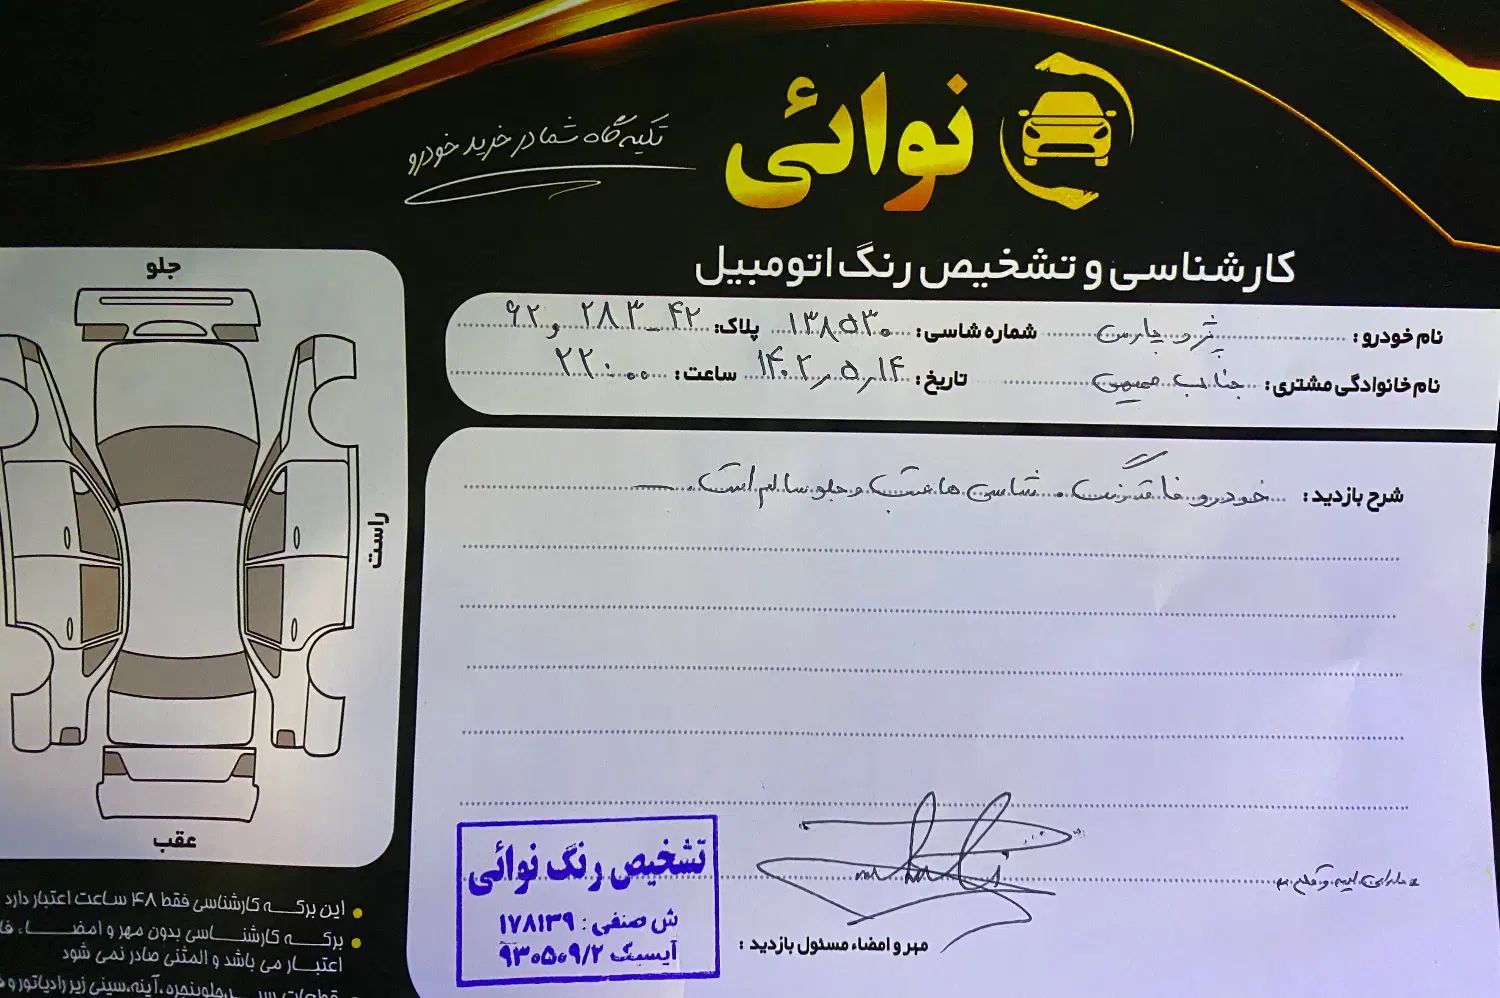 نوائی
تکیه گاه شما در خرید خودرو
کارشناسی و تشخیص رنگ اتومبیل
نام خودرو: پژو پارس شماره شاسی: ۱۳۸۵۳۰ پلاک: ۴۲ـ۲۸۳ و ۶۲
نام خانوادگی مشتری: جناب تاریخ: ۱۴۰۲٫۵٫۱۴ ساعت: ۲۲:۰۰
جلو
شرح بازدید: خودرو فاقد رنگ. شاسی ها عقب و جلو سالم است.
راست
عقب
تشخیص رنگ نوائی
ش صنفی: ۱۷۸۱۳۹
آیسیک ۹۳۰۵۰۹/۲
مهر و امضاء مسئول بازدید:
این برگه کارشناسی فقط ۴۸ ساعت اعتبار دارد
برگه کارشناسی بدون مهر و امضاء، فا
اعتبار می باشد و المثنی صادر نمی شود
قطعات سپر، جلوپنجره، آینه، سینی زیر رادیاتور و